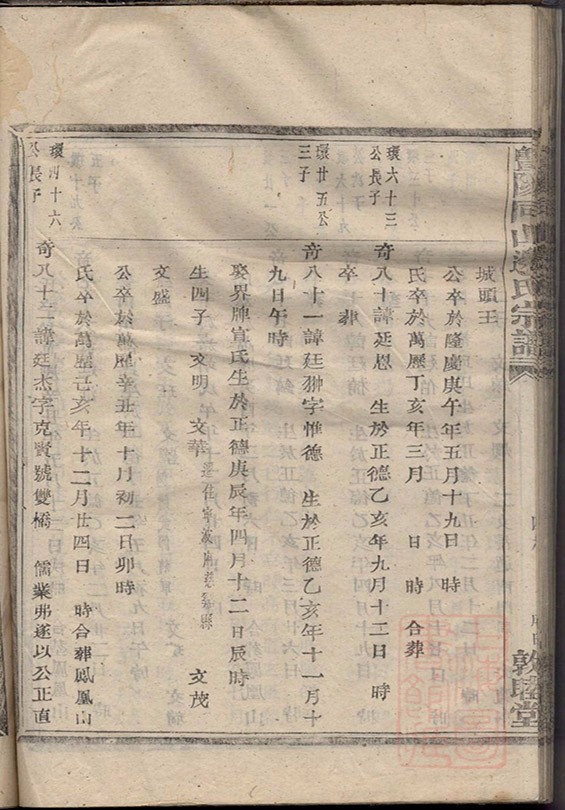 同山邊氏宗譜
敦睦堂
城頭王
公卒於隆慶庚午年五月十九日 時
氏卒於萬歷丁亥年三月 日 時 合葬
環六十三
公長子
奇八十諱廷恩 生於正德乙亥年九月十三日 時
卒 葬
環廿五公
三子
奇八十一諱廷翀字惟德 生於正德乙亥年十一月十
九日午時
娶界牌宣氏生於正德庚辰年四月十二日辰時
生四子 文明 文華 遷住寧波府慈谿縣 文茂
文盛
公卒於萬歷辛丑年十月初二日卯時
氏卒於萬歷己亥年十二月廿四日 時合葬鳳凰山
環 十六
公長子
奇八十二諱廷杰字克賢號雙橋 儒業弗遂以公正直